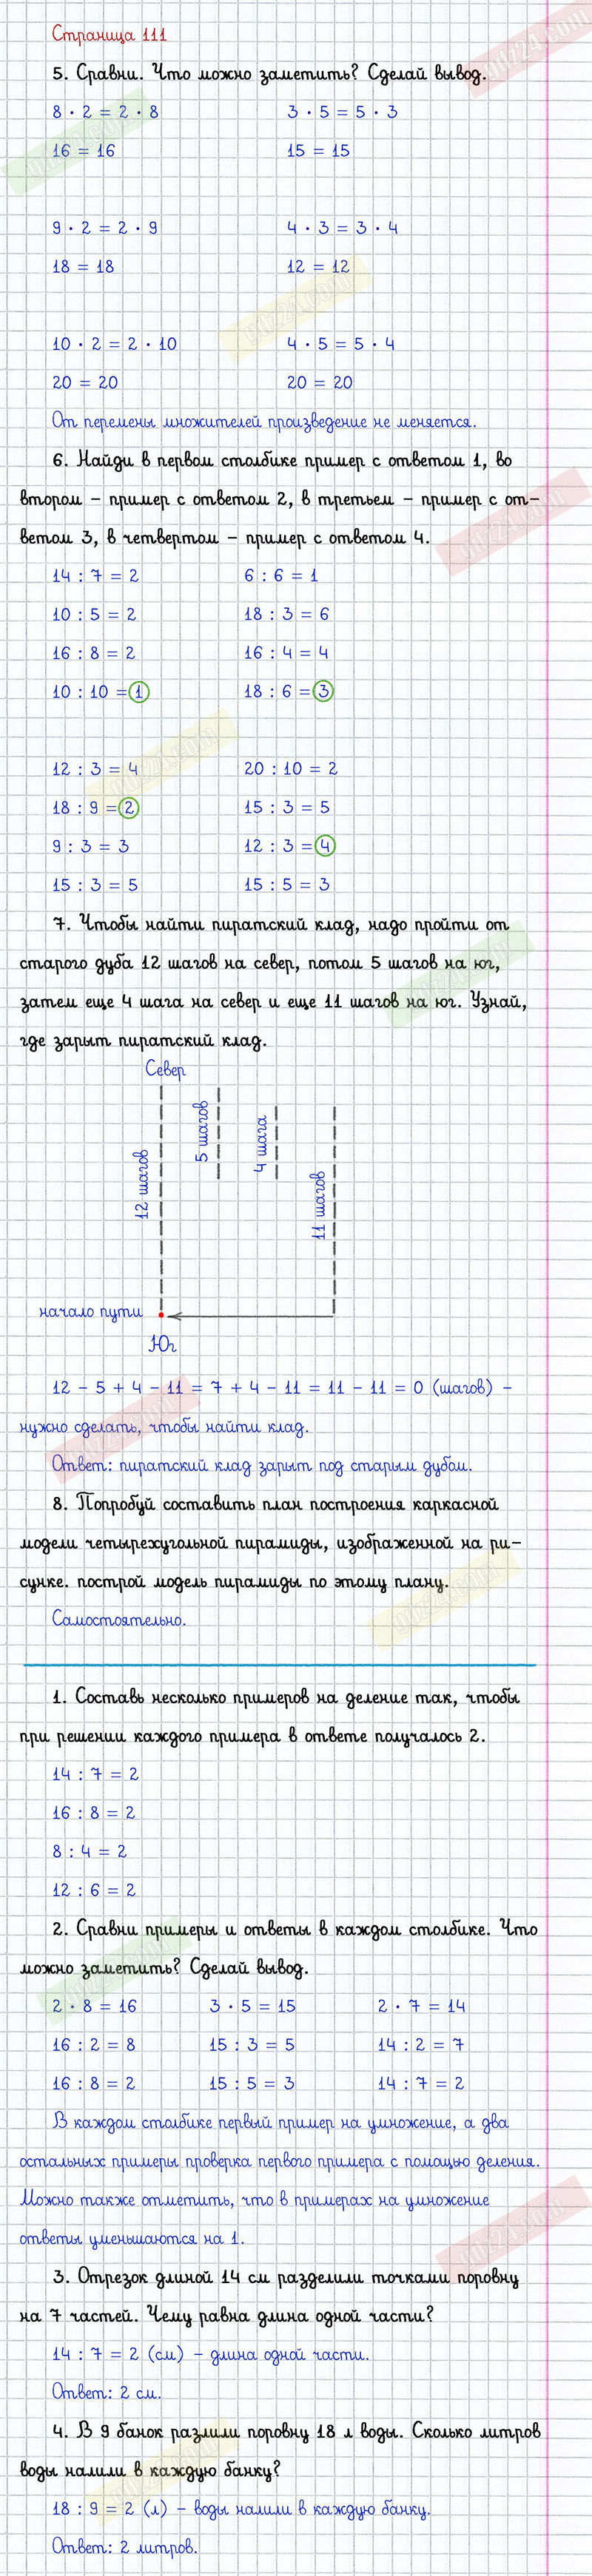 Страница 111
5. Сравни. Что можно заметить? Сделай вывод.
8 · 2 = 2 · 8 3 · 5 = 5 · 3
16 = 16 15 = 15
9 · 2 = 2 · 9 4 · 3 = 3 · 4
18 = 18 12 = 12
10 · 2 = 2 · 10 4 · 5 = 5 · 4
20 = 20 20 = 20
От перемены множителей произведение не меняется.
6. Найди в первом столбике пример с ответом 1, во
втором – пример с ответом 2, в третьем – пример с от-
ветом 3, в четвертом – пример с ответом 4.
14 : 7 = 2 6 : 6 = 1
10 : 5 = 2 18 : 3 = 6
16 : 8 = 2 16 : 4 = 4
10 : 10 = 1 18 : 6 = 3
12 : 3 = 4 20 : 10 = 2
18 : 9 = 2 15 : 3 = 5
9 : 3 = 3 12 : 3 = 4
15 : 3 = 5 15 : 5 = 3
7. Чтобы найти пиратский клад, надо пройти от
старого дуба 12 шагов на север, потом 5 шагов на юг,
затем еще 4 шага на север и еще 11 шагов на юг. Узнай,
где зарыт пиратский клад.
Север
12 шагов
5 шагов
4 шага
11 шагов
начало пути
Юг
12 – 5 + 4 – 11 = 7 + 4 – 11 = 11 – 11 = 0 (шагов) –
нужно сделать, чтобы найти клад.
Ответ: пиратский клад зарыт под старым дубом.
8. Попробуй составить план построения каркасной
модели четырехугольной пирамиды, изображенной на ри-
сунке. построй модель пирамиды по этому плану.
Самостоятельно.
1. Составь несколько примеров на деление так, чтобы
при решении каждого примера в ответе получалось 2.
14 : 7 = 2
16 : 8 = 2
8 : 4 = 2
12 : 6 = 2
2. Сравни примеры и ответы в каждом столбике. Что
можно заметить? Сделай вывод.
2 · 8 = 16 3 · 5 = 15 2 · 7 = 14
16 : 2 = 8 15 : 3 = 5 14 : 2 = 7
16 : 8 = 2 15 : 5 = 3 14 : 7 = 2
В каждом столбике первый пример на умножение, а два
остальных примеры проверка первого примера с помощью деления.
Можно также отметить, что в примерах на умножение
ответы уменьшаются на 1.
3. Отрезок длиной 14 см разделили точками поровну
на 7 частей. Чему равна длина одной части?
14 : 7 = 2 (см) – длина одной части.
Ответ: 2 см.
4. В 9 банок разлили поровну 18 л воды. Сколько литров
воды налили в каждую банку?
18 : 9 = 2 (л) – воды налили в каждую банку.
Ответ: 2 литров.
gdz24.com
gdz24.com
gdz24.com
gdz24.com
gdz24.com
gdz24.com
gdz24.com
gdz24.com
gdz24.com
gdz24.com
gdz24.com